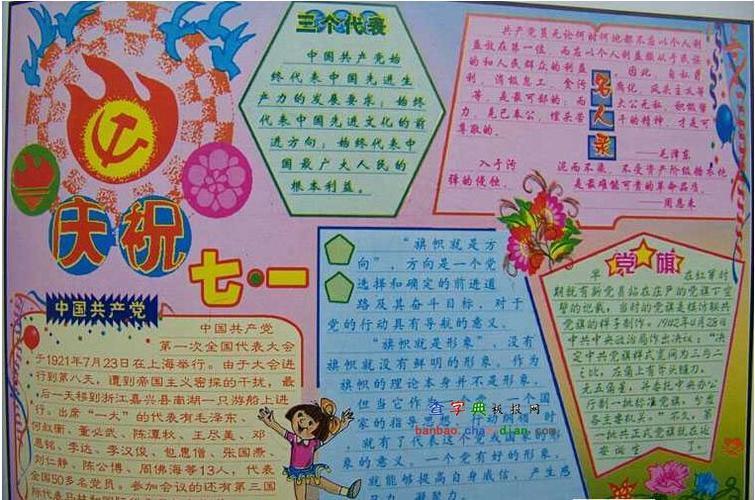 庆祝
七·一
三个代表
中国共产党始
终代表中国先进生
产力的发展要求；始终
代表中国先进文化的前
进方向；始终代表中
国最广大人民的
根本利益。
共产党员无论何时何地都不应以个人利
益放在第一位，而应以个人利益服从于民族
的和人民群众的利益。因此，自私自
利，消极怠工，贪污腐化，风头主义等
等，是最可鄙的；而大公无私，积极努
力，克己奉公，埋头苦干的精神，才是可
尊敬的。
——毛泽东
名人录
入于污泥而不染，不受资产阶级糖衣炮
弹的侵蚀，是最难能可贵的革命品质。
——周恩来
中国共产党
中国共产党
第一次全国代表大会
于1921年7月23日在上海举行。由于大会进
行到第八天，遭到帝国主义密探的干扰，最
后一天移到浙江嘉兴县南湖一只游船上进
行。出席“一大”的代表有毛泽东、
何叔衡、董必武、陈潭秋、王尽美、邓
恩铭、李达、李汉俊、包惠僧、张国焘、
刘仁静、陈公博、周佛海等13人，代表
全国50多名党员。参加会议的还有第三国
“旗帜就是方
向”，方向是一个党
选择和确定的前进道
路及其奋斗目标，对于
党的行动具有导航的意义。
“旗帜就是形象”，没有
旗帜就没有鲜明的形象。作为
旗帜的理论本身并不是形象，
但当它作为一个党、一个国
家的指导思想、行动纲领时
，就有了代表这个党或国家的形
象的意义。一个党有好的形象，
就能够提高自身威信，产生感
党旗
早在红军时
期就有新党员站在庄严的党旗下宣
誓的记载，当时的党旗是模仿联共
党旗的样子制作。1942年4月28日
中共中央政治局作出决议：“决
定中共党旗样式宽阔为三与二
之比，左角上有斧头镰刀，
无五角星，并委托中央办公
厅制一批标准党旗，分发
各主要机关”。不久，第
一批共式党旗就在延
安诞生了。
查字典板报网
banbao.chazidian.com